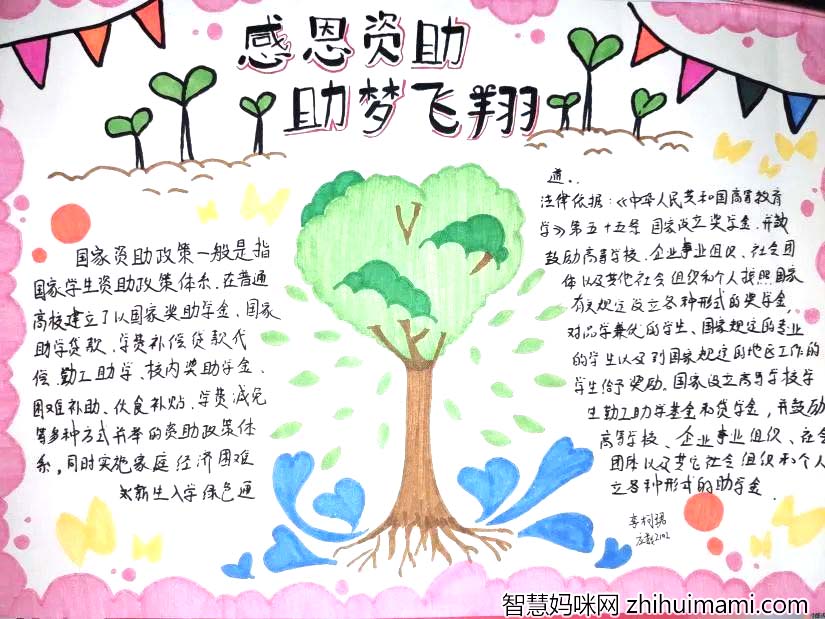 感恩资助
助梦飞翔
国家资助政策一般是指
国家学生资助政策体系.在普通
高校建立了以国家奖助学金、国家
助学贷款、学费补偿贷款代
偿、勤工助学、校内奖助学金、
困难补助、伙食补贴、学费减免
等多种方式并举的资助政策体
系,同时实施家庭经济困难
新生入学绿色通
道..
法律依据:《中华人民共和国高等教育
学》第五十五条 国家设立奖学金,并鼓
鼓励高等学校、企业事业组织、社会团
体以及其他社会组织和个人按照国家
有关规定设立各种形式的奖学金,
对品学兼优的学生、国家规定的专业
的学生以及到国家规定的地区工作的
学生给予奖励。国家设立高等学校学
生勤工助学基金和贷学金,并鼓励
高等学校、企业事业组织、社会
团体以及其它社会组织和个人
立各种形式的助学金.
智慧妈咪网 zhihuimami.com